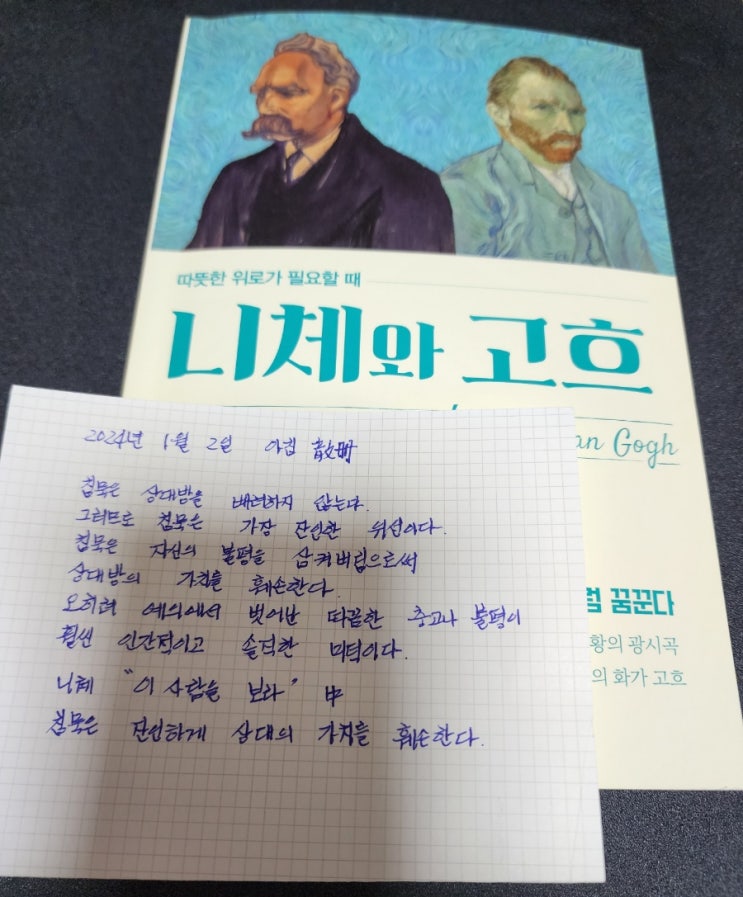 따뜻한 위로가 필요할 때
니체와 고흐
an Gogh
꿈꾼다
황의 광시곡
의 화가 고흐
2024년 1월 2일 아침 散冊
침묵은 상대방을 배려하지 않는다.
그러므로 침묵은 가장 잔인한 위선이다.
침묵은 자신의 불평을 삼켜버림으로써
상대방의 가치를 훼손한다.
오히려 예의에서 벗어난 따끔한 충고나 불평이
훨씬 인간적이고 솔직한 미덕이다.
니체 "이 사람을 보라" 中
침묵은 잔인하게 상대의 가치를 훼손한다.